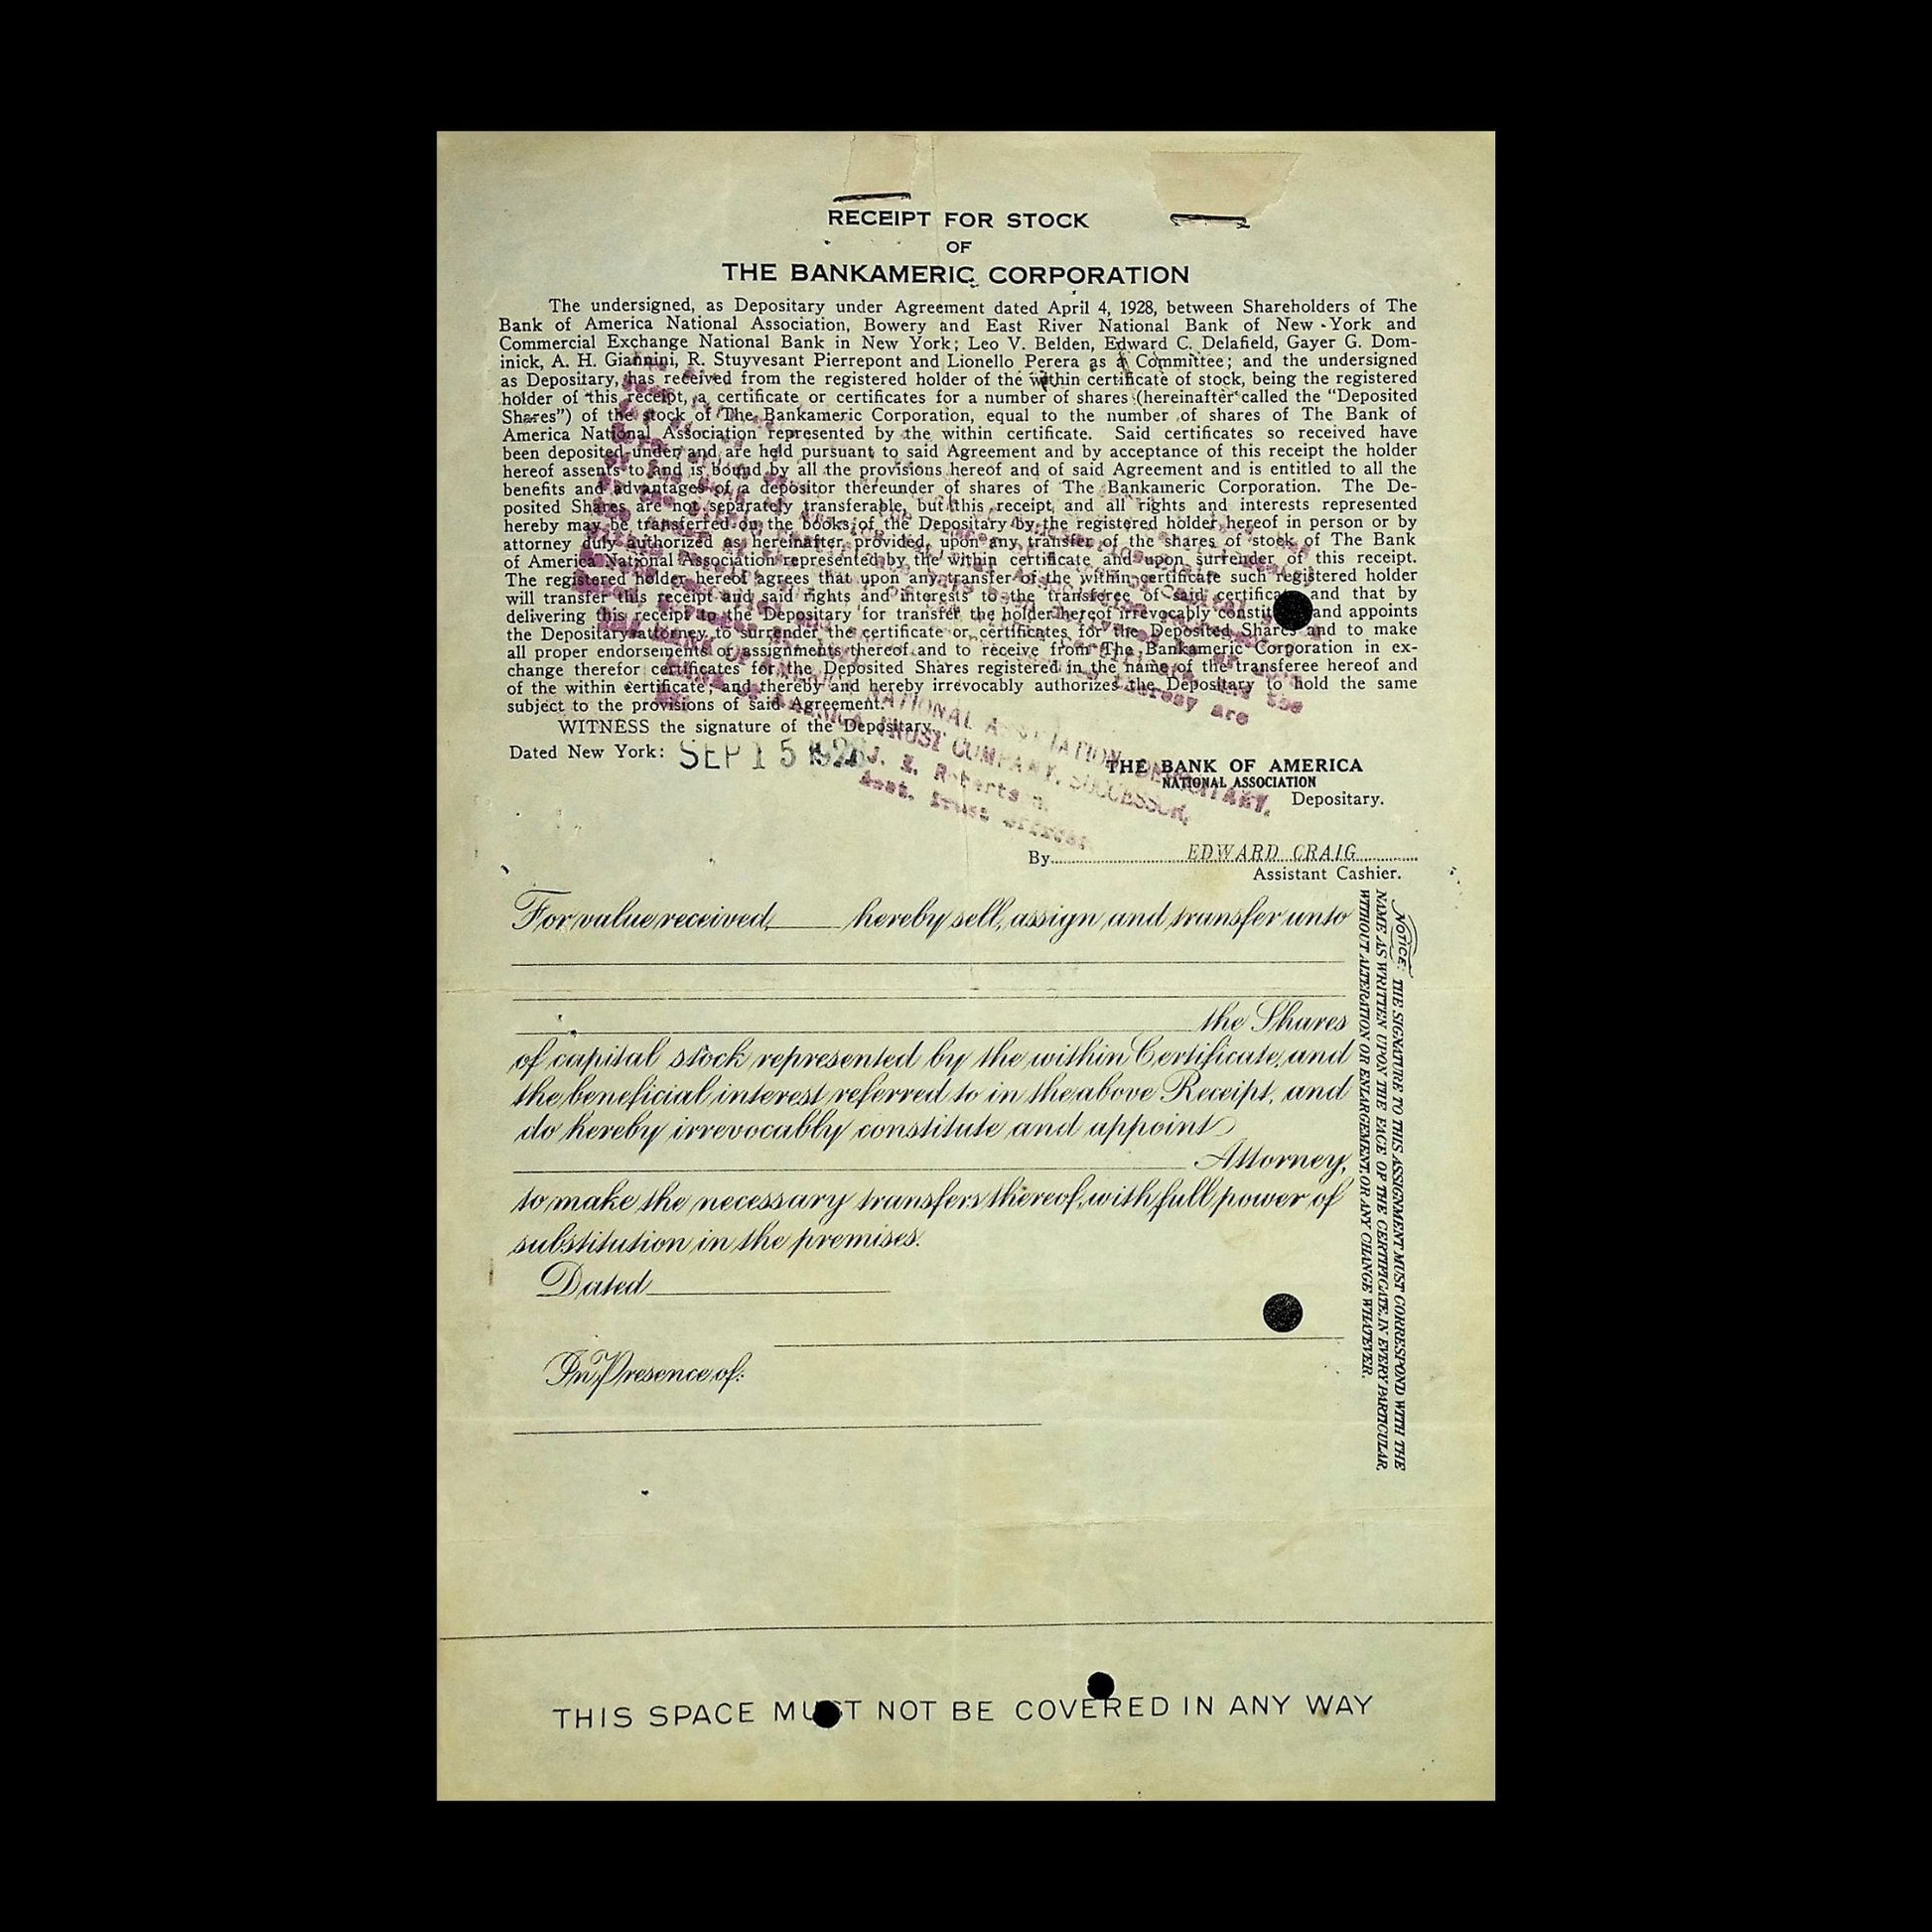 RECEIPT FOR STOCK
OF
THE BANKAMERIC CORPORATION
The undersigned, as Depositary under Agreement dated April 4, 1928, between Shareholders of The
Bank of America National Association, Bowery and East River National Bank of New York and
Commercial Exchange National Bank in New York; Leo V. Belden, Edward C. Delafield, Gayer G. Dom-
inick, A. H. Giannini, R. Stuyvesant Pierrepont and Lionello Perera as a Committee; and the undersigned
as Depositary, has received from the registered holder of the within certificate of stock, being the registered
holder of this receipt, a certificate or certificates for a number of shares (hereinafter called the “Deposited
Shares”) of the stock of The Bankameric Corporation, equal to the number of shares of The Bank of
America National Association represented by the within certificate. Said certificates so received have
been deposited under and are held pursuant to said Agreement and by acceptance of this receipt the holder
hereof assents to and is bound by all the provisions hereof and of said Agreement and is entitled to all the
benefits and advantages of a depositor thereunder of shares of The Bankameric Corporation. The De-
posited Shares are not separately transferable, but this receipt and all rights and interests represented
hereby may be transferred on the books of the Depositary by the registered holder hereof in person or by
attorney duly authorized as hereinafter provided, upon any transfer of the shares of stock of The Bank
of America National Association represented by the within certificate and upon surrender of this receipt.
The registered holder hereof agrees that upon any transfer of the within certificate such registered holder
will transfer this receipt and said rights and interests to the transferee of said certificate and that by
delivering this receipt to the Depositary for transfer the holder hereof irrevocably constit and appoints
the Depositary attorney to surrender the certificate or certificates for the Deposited Shares and to make
all proper endorsements or assignments thereof and to receive from The Bankameric Corporation in ex-
change therefor certificates for the Deposited Shares registered in the name of the transferee hereof and
of the within certificate; and thereby and hereby irrevocably authorizes the Depositary to hold the same
subject to the provisions of said Agreement.
WITNESS the signature of the Depositary.
Dated New York: SEP 15 1928
NATIONAL ASSOCIATION, DEPOSITARY,
TRUST COMPANY, SUCCESSOR,
J. E. Robertson
Asst. Trust Officer
THE BANK OF AMERICA
NATIONAL ASSOCIATION
Depositary.
By EDWARD CRAIG
Assistant Cashier.
For value received, hereby sell, assign and transfer unto
the Shares
of capital stock represented by the within Certificate, and
the beneficial interest referred to in the above Receipt, and
do hereby irrevocably constitute and appoint
Attorney,
to make the necessary transfers thereof, with full power of
substitution in the premises.
Dated
In Presence of:
NOTICE: THE SIGNATURE TO THIS ASSIGNMENT MUST CORRESPOND WITH THE
NAME AS WRITTEN UPON THE FACE OF THE CERTIFICATE, IN EVERY PARTICULAR,
WITHOUT ALTERATION OR ENLARGEMENT, OR ANY CHANGE WHATEVER.
THIS SPACE MUST NOT BE COVERED IN ANY WAY